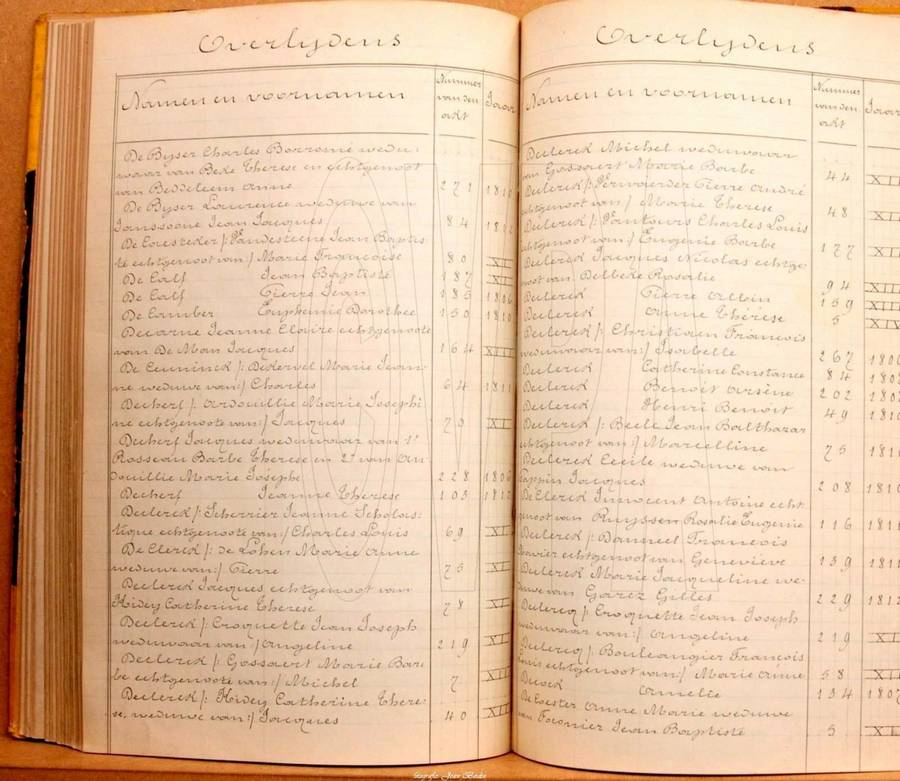 Overlydens
Namen en voornamen
Nummer van den akt
Jaar
De Byser Charles Borromé wedu-
waar van Beke Therese en echtgenoot
van Beddeleem Anne 271 1810
De Byser Laurence weduwe van
Janssoone Jean Jacques 84 1812
De Jean Baptis-
te echtgenoot van:/ Marie Françoise 80 XII
De Calf Jean Baptiste 187 XII
De Calf Pierre Jean 185 1806
De Camber Euphemie Dorothee 150 1810
Decarne Jeanne Claire echtgenoote
van De Man Jacques 164 XIII
De Ceuninck /: Dekervel Marie Jean-
ne weduwe van:/ Charles 64 1811
Decherf /: Ardouillie Marie Josephi-
ne echtgenoote van:/ Jacques XI
Decherf Jacques weduwaar van 1°
Rosseau Barbe Therese en 2° van Ar-
douillie Marie Josephe 228 1806
Decherf Jeanne Therese 103 1812
Declerck /: Scherrier Jeanne Scholas-
tique echtgenoote van:/ Charles Louis 69 XI
De Clerck /: de Lohen Marie Anne
weduwe van:/ Pierre 75 XI
Declerck Jacques echtgenoot van
Hidey Catherine Therese 78 XI
Declerck /: Croquette Jean Joseph
weduwaar van:/ Angeline 219 XII
Declerck /: Gossaert Marie Bar-
be echtgenoote van:/ Michel 7 XII
Declerck /: Hidey Catherine There-
se, weduwe van:/ Jacques 40 XII
Overlydens
Namen en voornamen
Nummer van den akt
Jaar
Declerck Michel weduwaar
van Gossaert Marie Barbe 44 XII
Declerck /: Pierre André
echtgenoot van:/ Marie Therese 48 XII
Declerck /: Charles Louis
echtgenoot van:/ Eugenie Barbe 177 XII
Declerck Jacques Nicolas echtge-
noot van Delbeke Rosalie 94 XIII
Declerck Pierre Albin 159 XIII
Declerck Anne Thérèse 5 XIV
Declerck /: Christiaen François
weduwaar van:/ Isabelle 267 1806
Declerck Catherine Constance 84 1807
Declerck Benoit Arsène 202 1807
Declerck Henri Benoit 49 1810
Declerck /: Beele Jean Balthazar
echtgenoot van:/ Marcelline 75 1810
Declerck Cecile weduwe van
Pappin Jacques 208 1810
De Clerck Innocent Antoine echt-
genoot van Ruyssen Rosalie Eugenie 116 1811
Declerck /: Danneel Francois
Xavier echtgenoot van Geneviève 139 1811
Declerck Marie Jacqueline we-
duwe van Garez Gilles 229 1812
Declercq /: Croquette Jean Joseph
weduwaar van:/ Angeline 219 XI
Declercq /: Boulenangier François
Louis echtgenoot van:/ Marie Anne 58 XII
Decock Amelie 134 1807
De Coester Anne Marie weduwe
van Fournier Jean Baptiste 5 XI